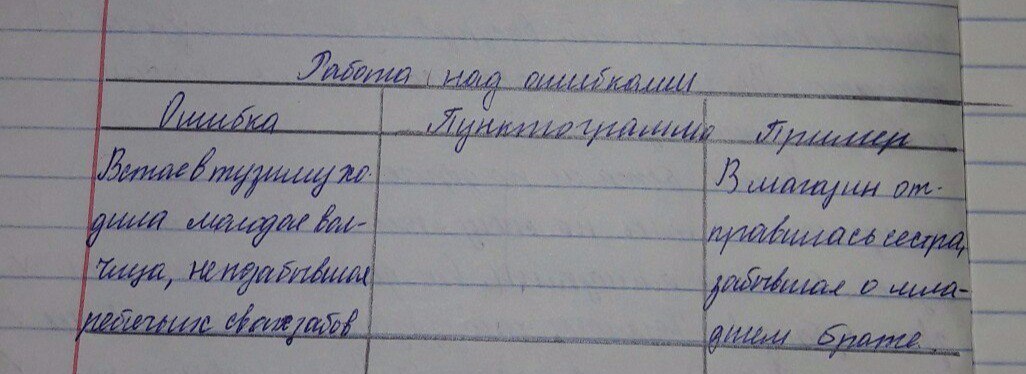 Работа над ошибками
Ошибка Пунктограмма Пример
В стае в ту зиму хо-
дила молодая вол-
чица, не позабывшая
ребячьих своих забав
В магазин от-
правилась сестра,
забывшая о млад-
шем брате.